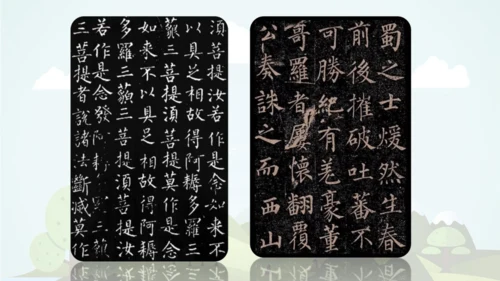 湏菩提汝若作是念如來不
以具足相故得阿耨多羅三
藐三菩提湏菩提莫作是念
如來不以具足相故得阿耨
多羅三藐三菩提湏菩提汝
若作是念發阿耨三藐
三菩提者說諸法斷滅莫作
蜀之士煖然生春
前後摧破吐蕃不
可勝紀有羌豪董
哥羅者屢懷翻覆
公奏誅之而西山